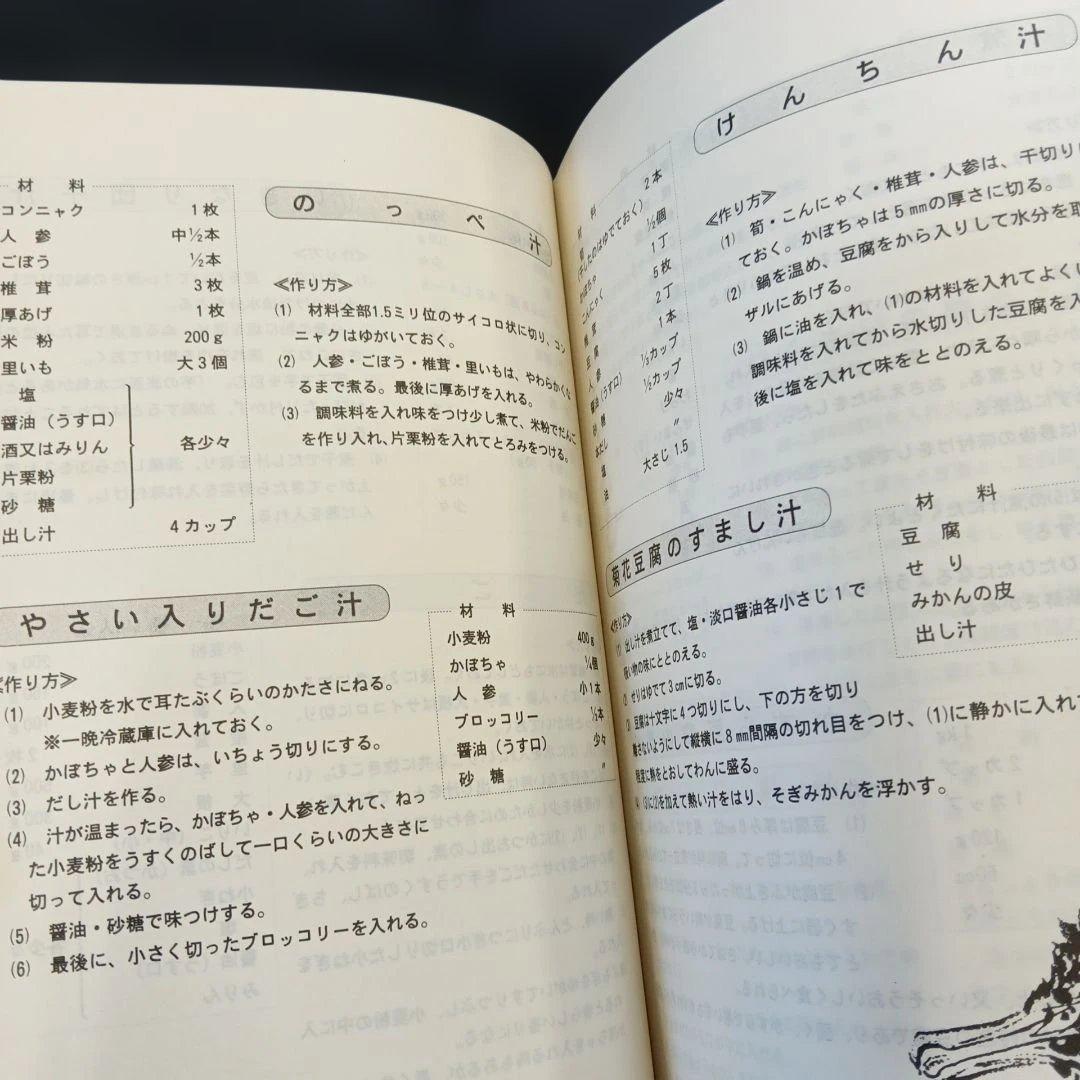 のっぺ汁
材料
コンニャク 1枚
人参 中½本
ごぼう ½本
椎茸 3枚
厚あげ 1枚
米粉 200g
里いも 大3個
塩
醤油(うす口)
酒又はみりん 各少々
片栗粉
砂糖
出し汁 4カップ
≪作り方≫
(1) 材料全部1.5ミリ位のサイコロ状に切り、コン
ニャクはゆがいておく。
(2) 人参・ごぼう・椎茸・里いもは、やわらかくな
るまで煮る。最後に厚あげを入れる。
(3) 調味料を入れ味をつけ少し煮て、米粉でだんご
を作り入れ、片栗粉を入れてとろみをつける。
やさい入りだご汁
材料
小麦粉 400g
かぼちゃ ¼個
人参 小1本
ブロッコリー ½本
醤油(うす口) 少々
砂糖 〃
≪作り方≫
(1) 小麦粉を水で耳たぶくらいのかたさにねる。
※一晩冷蔵庫に入れておく。
(2) かぼちゃと人参は、いちょう切りにする。
(3) だし汁を作る。
(4) 汁が温まったら、かぼちゃ・人参を入れて、ねっ
た小麦粉をうすくのばして一口くらいの大きさに
切って入れる。
(5) 醤油・砂糖で味つけする。
(6) 最後に、小さく切ったブロッコリーを入れる。
けんちん汁
材料
(干したのはゆでておく) 2本
かぼちゃ ½個
こんにゃく 1丁
椎茸 5枚
豆腐 2丁
人参 1本
醤油(うす口) ⅓カップ
砂糖 ½カップ
だし 少々
塩 〃
油 大さじ1.5
≪作り方≫
(1) 筍・こんにゃく・椎茸・人参は、千切りに
ておく。かぼちゃは5mmの厚さに切る。
(2) 鍋を温め、豆腐をから入りして水分を取
ザルにあげる。
(3) 鍋に油を入れ、(1)の材料を入れてよくい
調味料を入れてから水切りした豆腐を入
後に塩を入れて味をととのえる。
菊花豆腐のすまし汁
材料
豆腐
せり
みかんの皮
出し汁
≪作り方≫
(1) 出し汁を煮立てて、塩・淡口醤油各小さじ1で
吸い物の味にととのえる。
(2) せりはゆでて3cmに切る。
(3) 豆腐は十文字に4つ切りにし、下の方を切り
離さないようにして縦横に8mm間隔の切れ目をつけ、(1)に静かに入れて
程度に熱をとおしてわんに盛る。
(4) (3)に(2)を加えて熱い汁をはり、そぎみかんを浮かす。